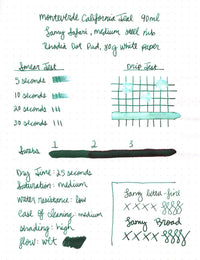 Monteverde California Teal 90ml
Lamy Safari, medium steel nib
Rhodia Dot Pad, 80g white paper
Smear Test
Drip Test
5 seconds
10 seconds
20 seconds
30 seconds
Swabs 1 2 3
Dry Time: 25 seconds
Saturation: medium
Water resistance: low
Ease of cleaning: medium
Shading: high
Flow: wet
Lamy extra-fine
xxxx
Lamy Broad
xxxx